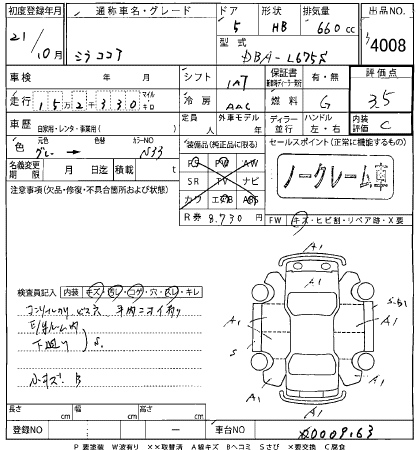 初度登録年月
21
10月
通称車名・グレード
ミラココア
ドア
5
形状
HB
排気量
660 cc
型式
DBA-L675S
出品NO.
4008
車検 年 月
シフト
IAT
保証書
有・無
評価点
3.5
走行
152330
マイル
キロ
冷房
AAC
燃料
G
内装
評価
C
車歴
自家用・レンタ・事業用( )
定員
人
外車モデル
年
ディーラー
並行
ハンドル
左・右
色
元色
グレー
色替
カラーNO
N33
装備品(純正品に限る)
PS PW AW
SR TV ナビ
カワ エアB ABS
セールスポイント(正常に機能するもの)
ノークレーム車
名義変更
期限
月 日
積載
t
注意事項(欠品・修復・不具合箇所および状態)
R券
8,730 円
FW
キズ・ヒビ割・リペア跡・X要
検査員記入
内装
キズ・汚レ・コゲ・穴・スレ・キレ
下廻り S
小キズ B
A1
A1
A1
A1
A1
A1
A1
A1
S
S・B1
長さ
cm
幅
cm
高さ
cm
登録NO
ー
車台NO
0009163
P 要塗装 W波有り ××取替済 A線キズ Bヘコミ Sさび ×要交換 C腐食